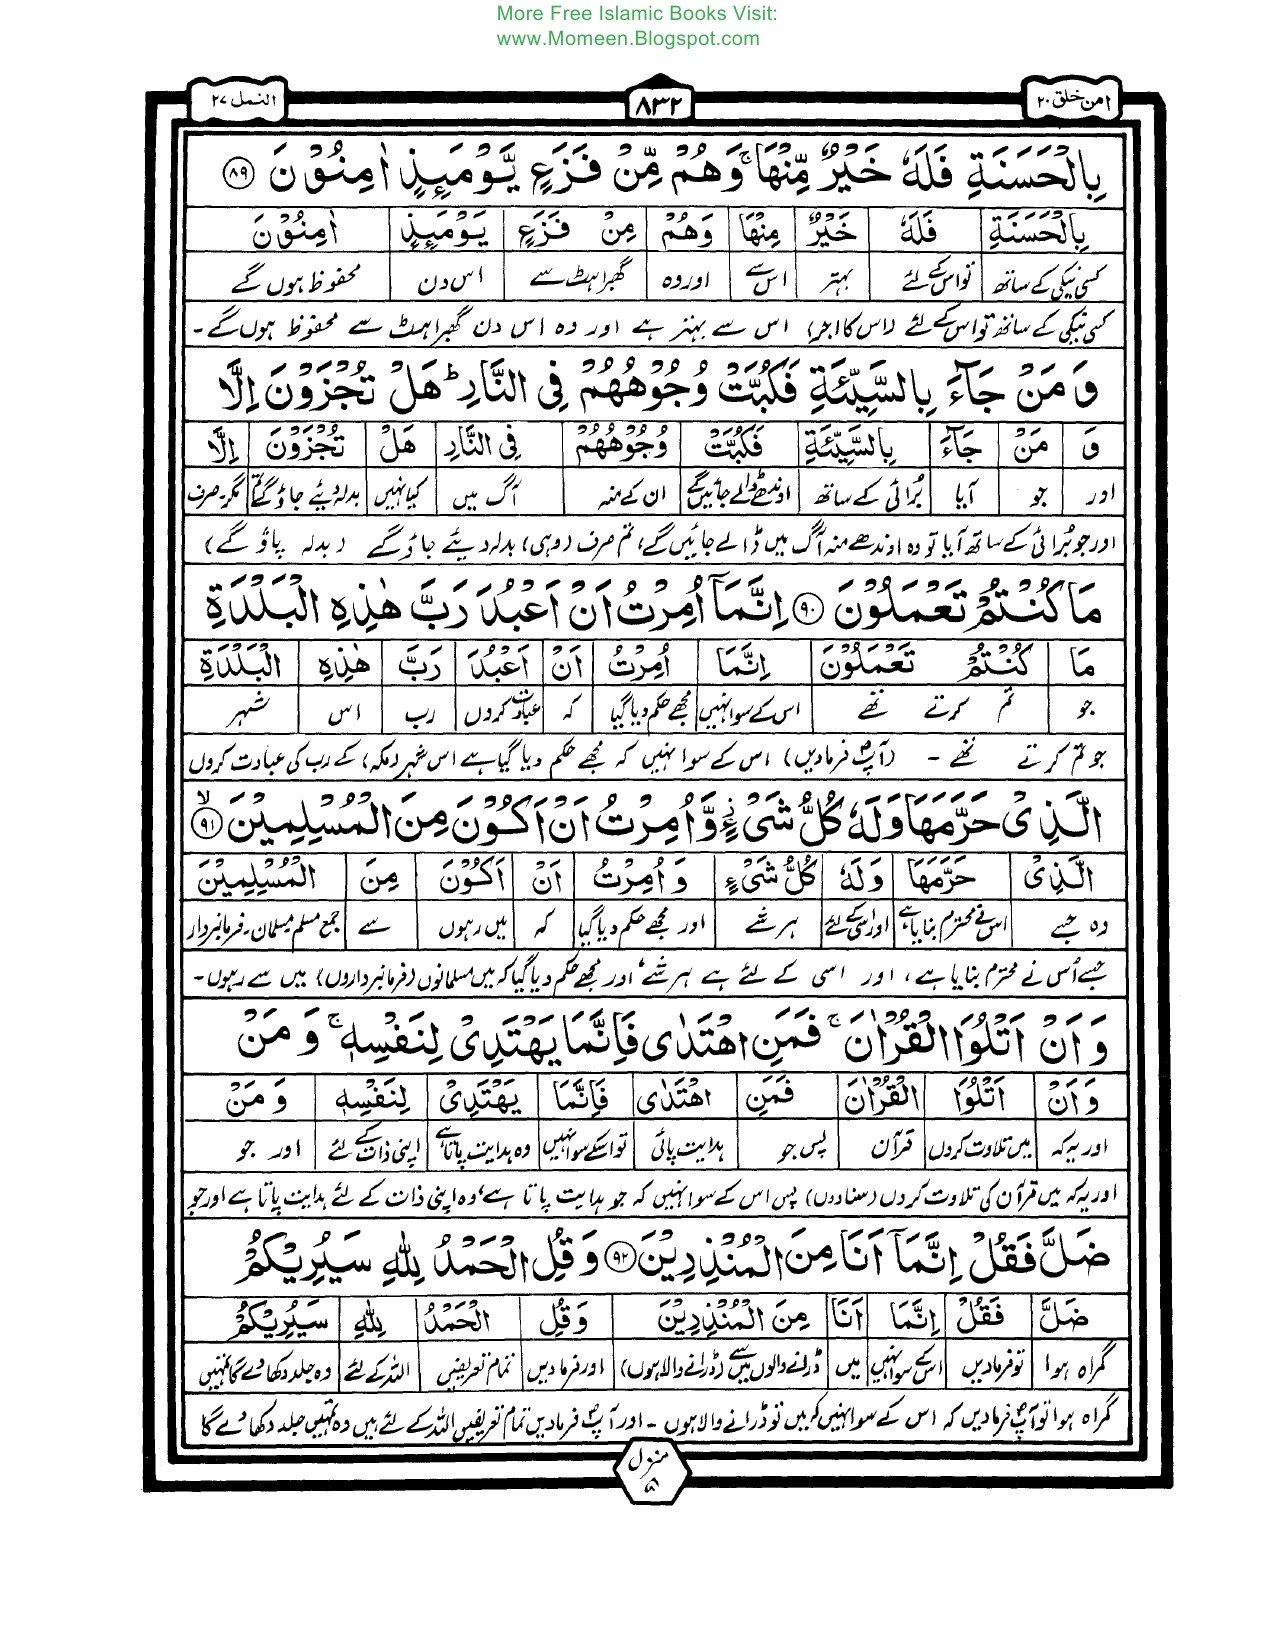 More Free Islamic Books Visit:
www.Momeen.Blogspot.com
امن خلق ۲۰
۸۳۲
النمل ۲۷
بِالْحَسَنَةِ فَلَهٗ خَيْرٌ مِّنْهَا ۚ وَهُمْ مِّنْ فَزَعٍ يَّوْمَئِذٍ اٰمِنُوْنَ ﴿۸۹﴾
بِالْحَسَنَةِ فَلَهٗ خَيْرٌ مِنْهَا وَهُمْ مِنْ فَزَعٍ يَوْمَئِذٍ اٰمِنُوْنَ
کسی نیکی کے ساتھ تو اس کے لئے بہتر اس سے اور وہ گھبراہٹ سے اس دن محفوظ ہوں گے
کسی نیکی کے ساتھ تو اس کے لئے (اس کا اجر) اس سے بہتر ہے اور وہ اس دن گھبراہٹ سے محفوظ ہوں گے۔
وَمَنْ جَآءَ بِالسَّيِّئَةِ فَكُبَّتْ وُجُوْهُهُمْ فِى النَّارِ ؕ هَلْ تُجْزَوْنَ اِلَّا
وَ مَنْ جَآءَ بِالسَّيِّئَةِ فَكُبَّتْ وُجُوْهُهُمْ فِى النَّارِ هَلْ تُجْزَوْنَ اِلَّا
اور جو آیا بُرائی کے ساتھ اوندھے ڈالے جائیں گے ان کے منہ آگ میں کیا نہیں بدلہ دیئے جاؤ گے تم مگر۔صرف
اور جو بُرائی کے ساتھ آیا تو وہ اوندھے منہ آگ میں ڈالے جائیں گے، تم صرف (وہی) بدلہ دیئے جاؤ گے (بدلہ پاؤ گے)
مَا كُنْتُمْ تَعْمَلُوْنَ ﴿۹۰﴾ اِنَّمَآ اُمِرْتُ اَنْ اَعْبُدَ رَبَّ هٰذِهِ الْبَلْدَةِ
مَا كُنْتُمْ تَعْمَلُوْنَ اِنَّمَا اُمِرْتُ اَنْ اَعْبُدَ رَبَّ هٰذِهِ الْبَلْدَةِ
جو تم کرتے تھے اس کے سوا نہیں مجھے حکم دیا گیا کہ عبادت کروں رب اس شہر
جو تم کرتے تھے - (آپ فرمادیں) اس کے سوا نہیں کہ مجھے حکم دیا گیا ہے اس شہر (مکہ) کے رب کی عبادت کروں
الَّذِىْ حَرَّمَهَا وَلَهٗ كُلُّ شَىْءٍ وَّاُمِرْتُ اَنْ اَكُوْنَ مِنَ الْمُسْلِمِيْنَ ﴿۹۱﴾ ۙ
الَّذِىْ حَرَّمَهَا وَلَهٗ كُلُّ شَىْءٍ وَاُمِرْتُ اَنْ اَكُوْنَ مِنَ الْمُسْلِمِيْنَ
وہ جسے اس نے محترم بنایا ہے اور اسی کے لئے ہر شے اور مجھے حکم دیا گیا کہ میں رہوں سے جمع مسلم مسلمان۔فرمانبردار
جسے اُس نے محترم بنایا ہے، اور اسی کے لئے ہے ہر شے، اور مجھے حکم دیا گیا کہ میں مسلمانوں (فرمانبرداروں) میں سے رہوں۔
وَاَنْ اَتْلُوَا الْقُرْاٰنَ ۚ فَمَنِ اهْتَدٰى فَاِنَّمَا يَهْتَدِىْ لِنَفْسِهٖ ۚ وَمَنْ
وَاَنْ اَتْلُوَا الْقُرْاٰنَ فَمَنِ اهْتَدٰى فَاِنَّمَا يَهْتَدِىْ لِنَفْسِهٖ وَمَنْ
اور یہ کہ میں تلاوت کروں قرآن پس جو ہدایت پائی تو اسکے سوا نہیں وہ ہدایت پاتا ہے اپنی ذات کے لئے اور جو
اور یہ کہ میں قرآن کی تلاوت کروں (سنادوں) پس اس کے سوا نہیں کہ جو ہدایت پاتا ہے، وہ اپنی ذات کے لئے ہدایت پاتا ہے اور جو
ضَلَّ فَقُلْ اِنَّمَآ اَنَا مِنَ الْمُنْذِرِيْنَ ﴿۹۲﴾ وَقُلِ الْحَمْدُ لِلّٰهِ سَيُرِيْكُمْ
ضَلَّ فَقُلْ اِنَّمَا اَنَا مِنَ الْمُنْذِرِيْنَ وَقُلِ الْحَمْدُ لِلّٰهِ سَيُرِيْكُمْ
گمراہ ہوا تو فرمادیں اسکے سوا نہیں میں ڈرانے والوں میں سے (ڈرانے والا ہوں) اور فرمادیں تمام تعریفیں اللہ کے لئے وہ جلد دکھا دے گا تمہیں
گمراہ ہوا تو آپ فرمادیں کہ اس کے سوا نہیں کہ میں تو ڈرانے والا ہوں - اور آپ فرمادیں تمام تعریفیں اللہ کے لئے ہیں وہ تمہیں جلد دکھا دے گا
منزل
۵